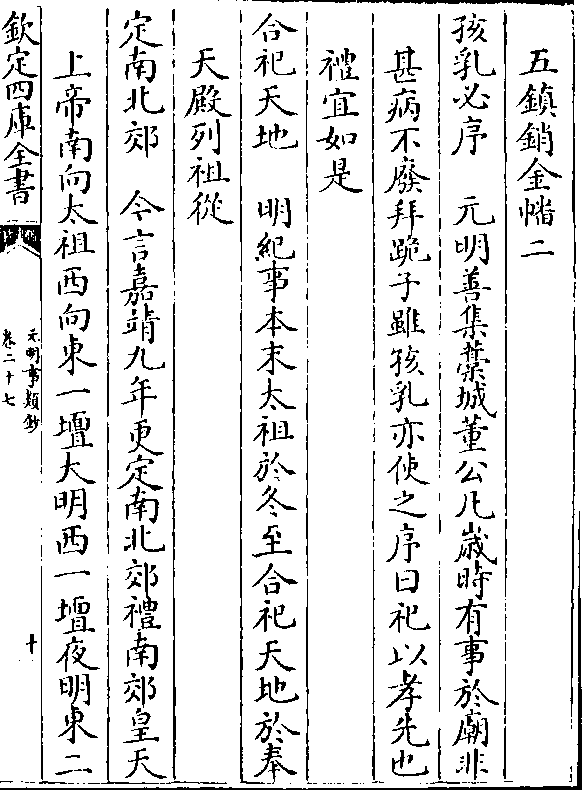 五鎮銷金幡二
孩乳必序　元明善集藁城董公凡嵗時有事於廟非
甚病不廢拜跪子雖孩乳亦使之序曰祀以孝先也
禮宜如是
合祀天地　明紀事本末太祖於冬至合祀天地於奉
天殿列祖從
定南北郊　今言嘉靖九年更定南北郊禮南郊皇天
上帝南向太祖西向東一壇大明西一壇夜明東二
欽定四庫全書
元明事類鈔
卷二十七
十